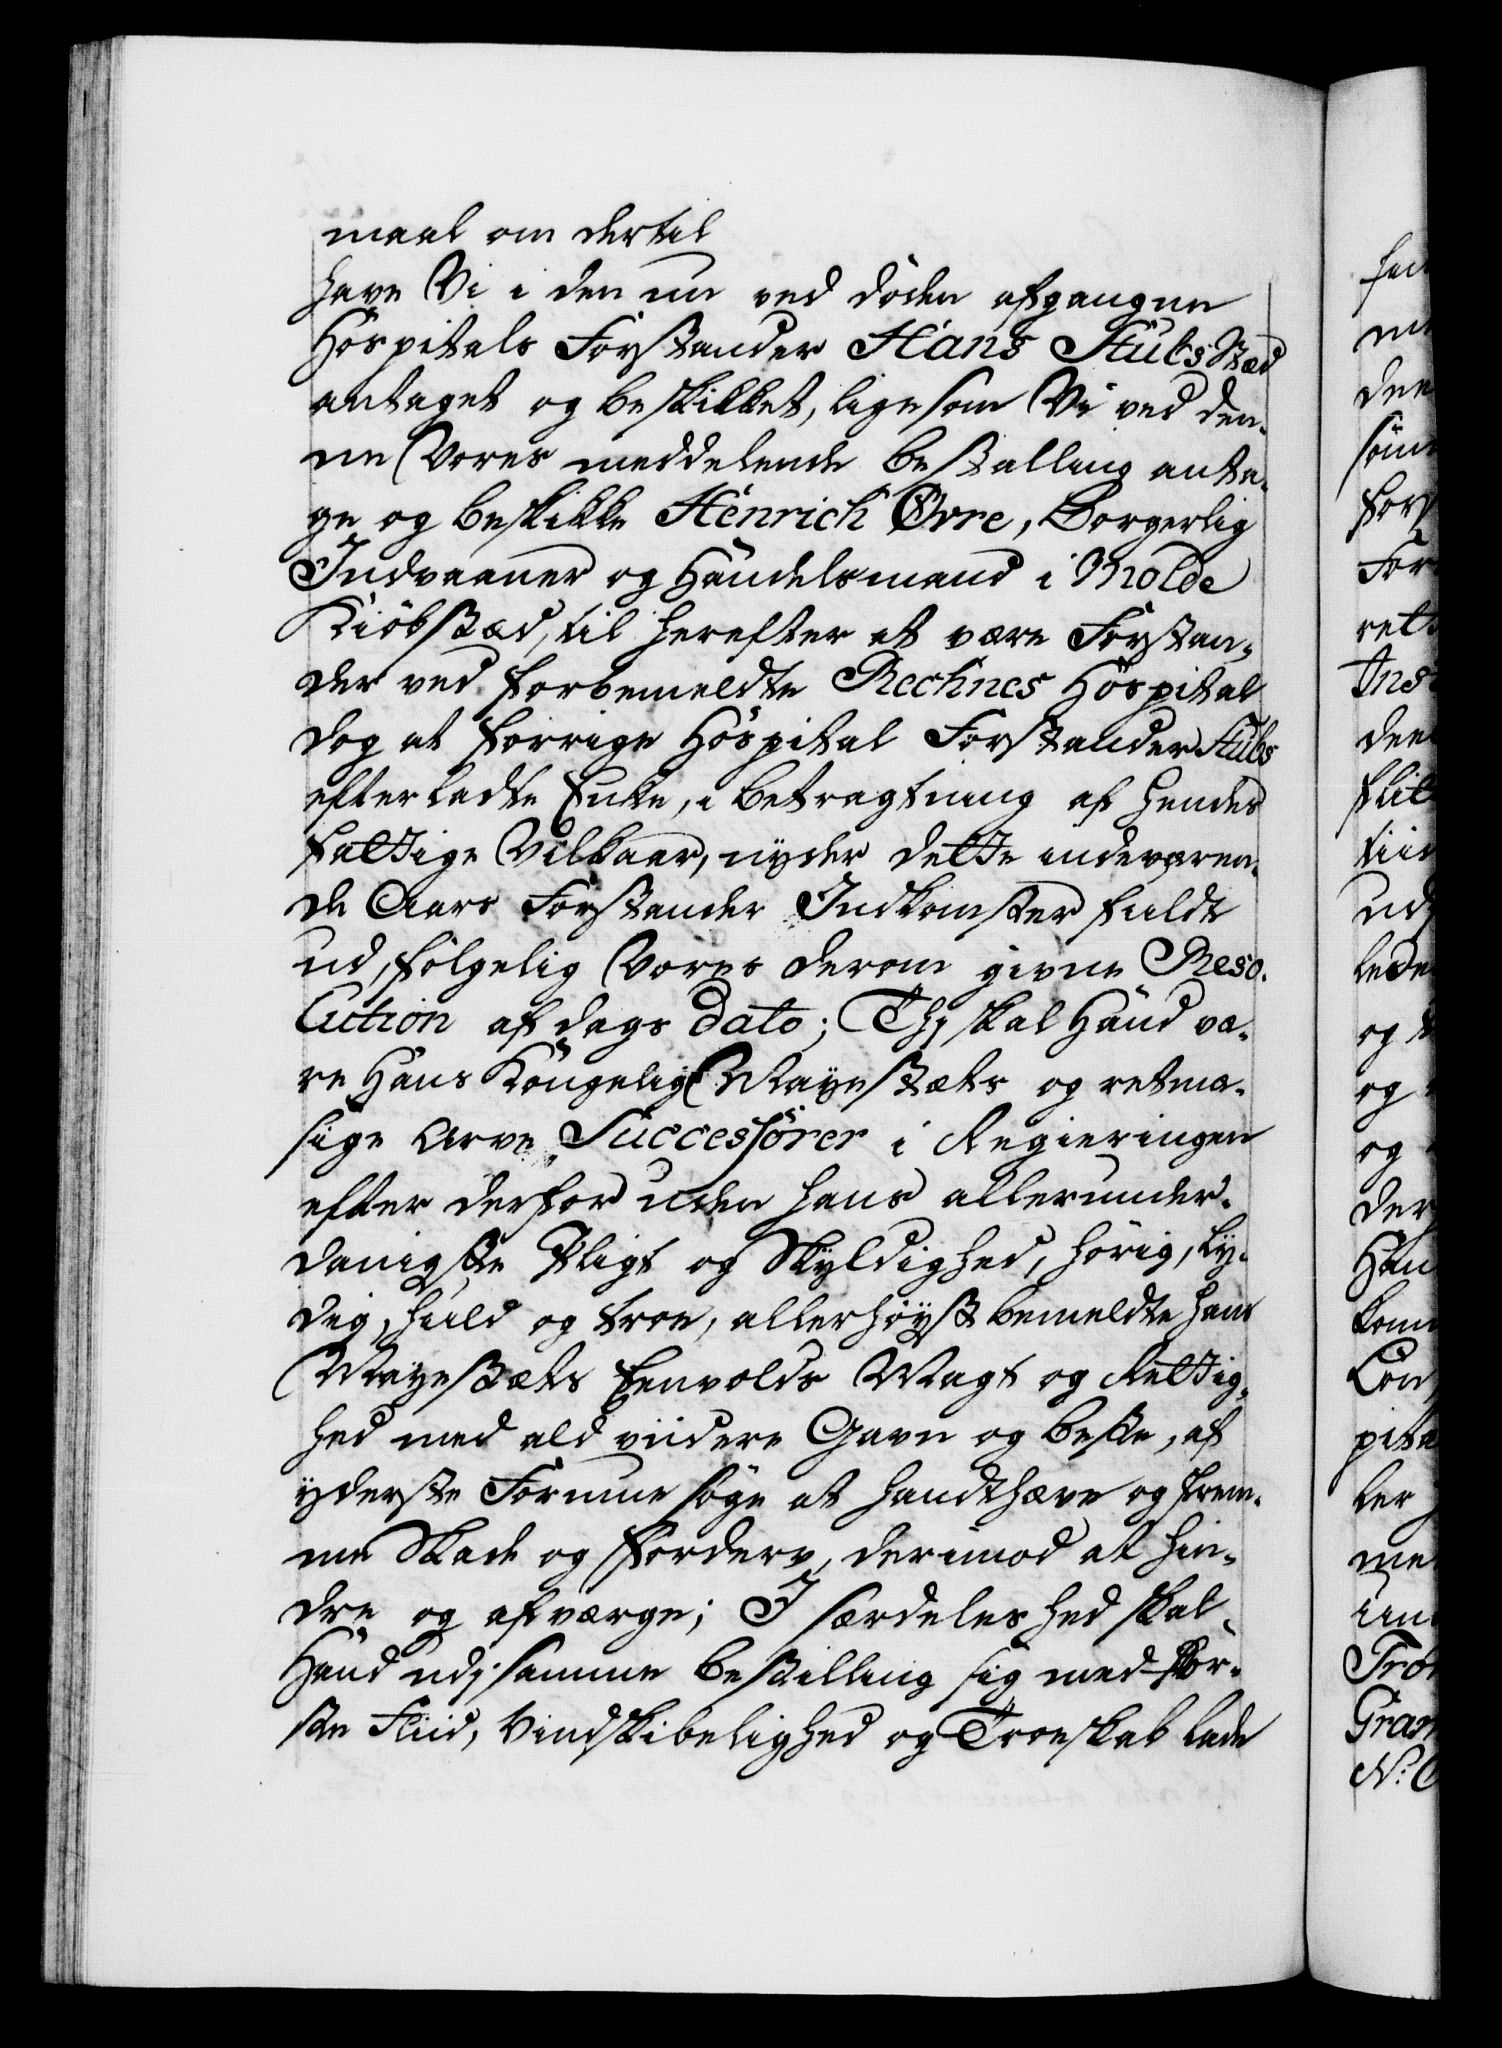 maal om dertil
have Vi i den nu ved döden afgangne
Hospitals Forstander Hans Stubs Stæd
antaget og beskikket, ligesom Vi ved den-
ne Vores meddelende bestalling anta-
ge og beskikke Henrich Øvre, Borgerlig
Indvaaner og Handelsmand i Molde
Kiöbstæd, til herefter at være Forstan-
der ved forbemeldte Rechnes Hospital
dog at forrige Hospital Forstander Stubs
efterladte Enke, i betragtning af hendes
fattige Vilkaar, nyder dette indeværen-
de Aars Forstander Indkomster fuldt
ud, fölgelig Vores derom givne Reso-
lution af dags Dato; Thj skal Hand væ-
re Hans Kongelig Mayestæts og retmæ-
sige Arve Successorer i Regieringen
efter derfor uden hans allerunder-
danigste Pligt og Skyldighed, hörig, ly-
dig, huld og troe, allerhöyst bemeldte hans
Mayestæts Eenvolds Magt og Rettig-
hed med ald viidere Gavn og beste, af
yderste Formue söge at handthæve og frem-
me Skade og Forderv, derimod at hin-
dre og afværge; I særdeleshed skal
Hand udj samme bestilling sig med stör-
ste Fliid, Vindskibelighed og Troeskab lade